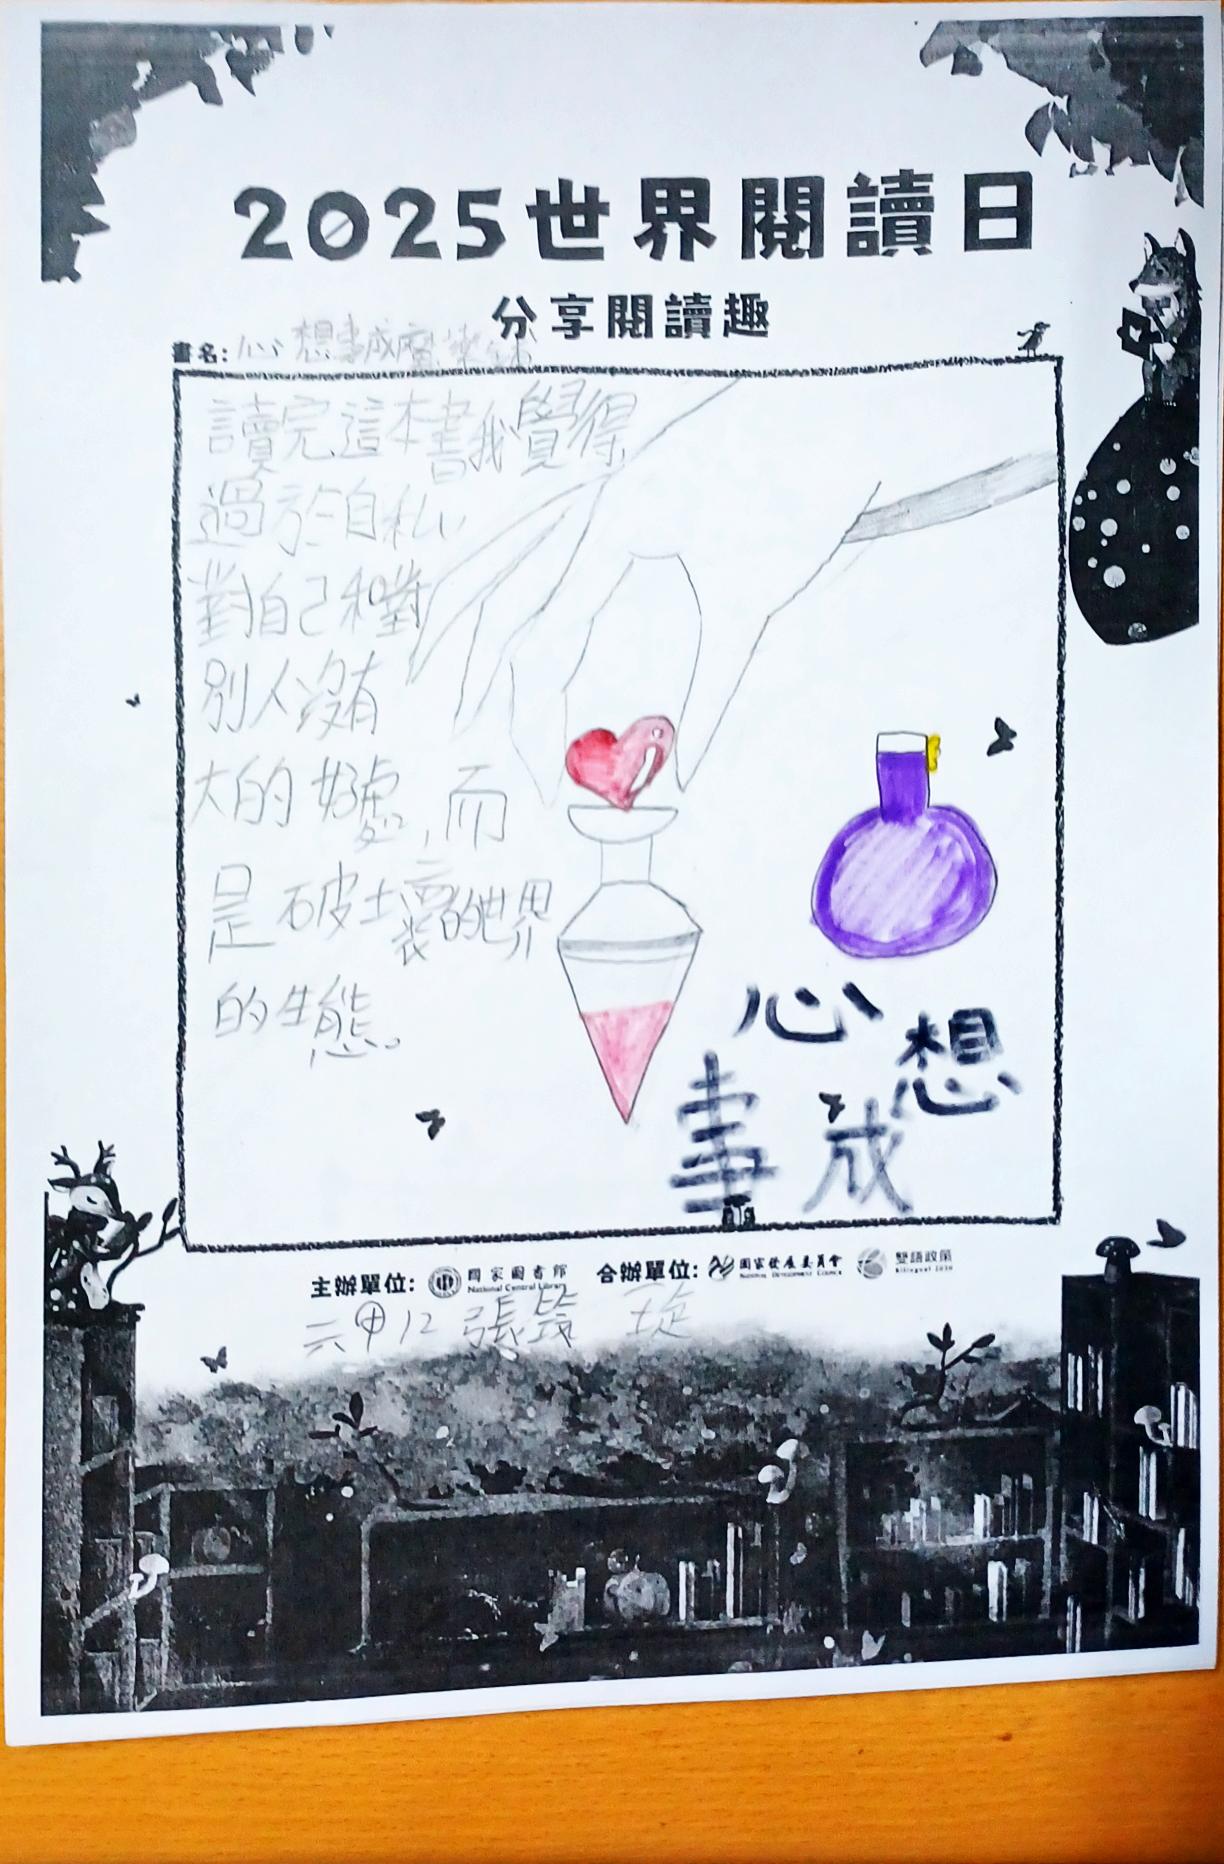 2025世界閱讀日
分享閱讀趣
書名:心想事成魔藥
讀完這本書我覺得
過於自私
對自己和對
別人沒有
大的好處,而
是破壞的世界
的生態。
心想
事成
主辦單位: 國家圖書館 National Central Library 合辦單位: 國家發展委員會 NATIONAL DEVELOPMENT COUNCIL 雙語政策 Bilingual 2030
六甲12 張 旋